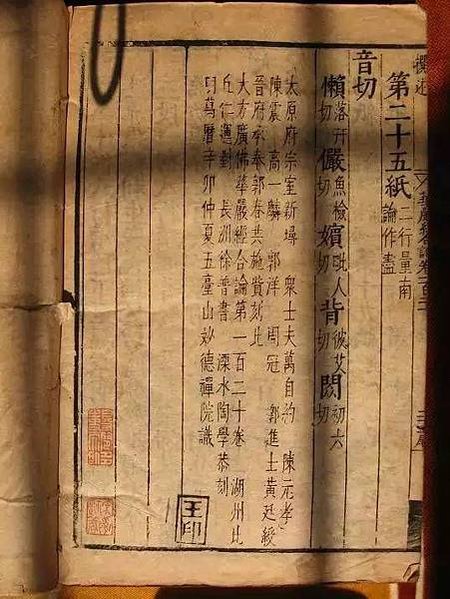 第二十五紙 二行量南論作盡
音切
懶 落汗切 儼 魚檢切 嬪 毗人切 背 彼艾切 閦 初六切
太原府宗室新㙻 衆士夫萬自約 陳元孝
陳震 高一麟 郭洋 周冠 郭進士黃廷綬
晉府承奉郭春共施貲刻此
大方廣佛華嚴經合論第一百二十卷 湖州比
丘仁邊對 長洲徐普書 溧水陶學恭刻
萬曆辛卯仲夏五臺山妙德禪院識
王印